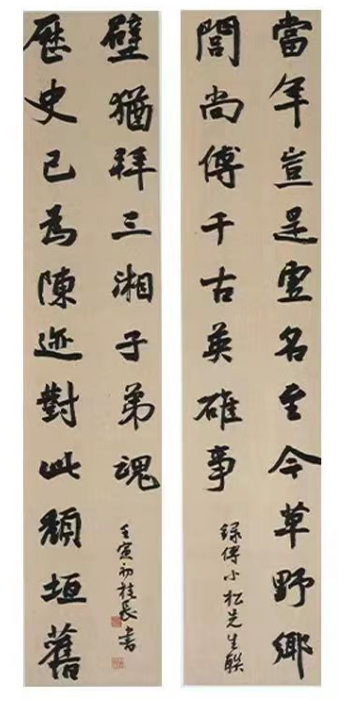 當年豈是虛名至今草野鄉
閭尚傳千古英雄事
錄傅小松先生聯
歷史已為陳迹對此頹垣舊
壁猶拜三湘子弟魂
壬寅初桂長書